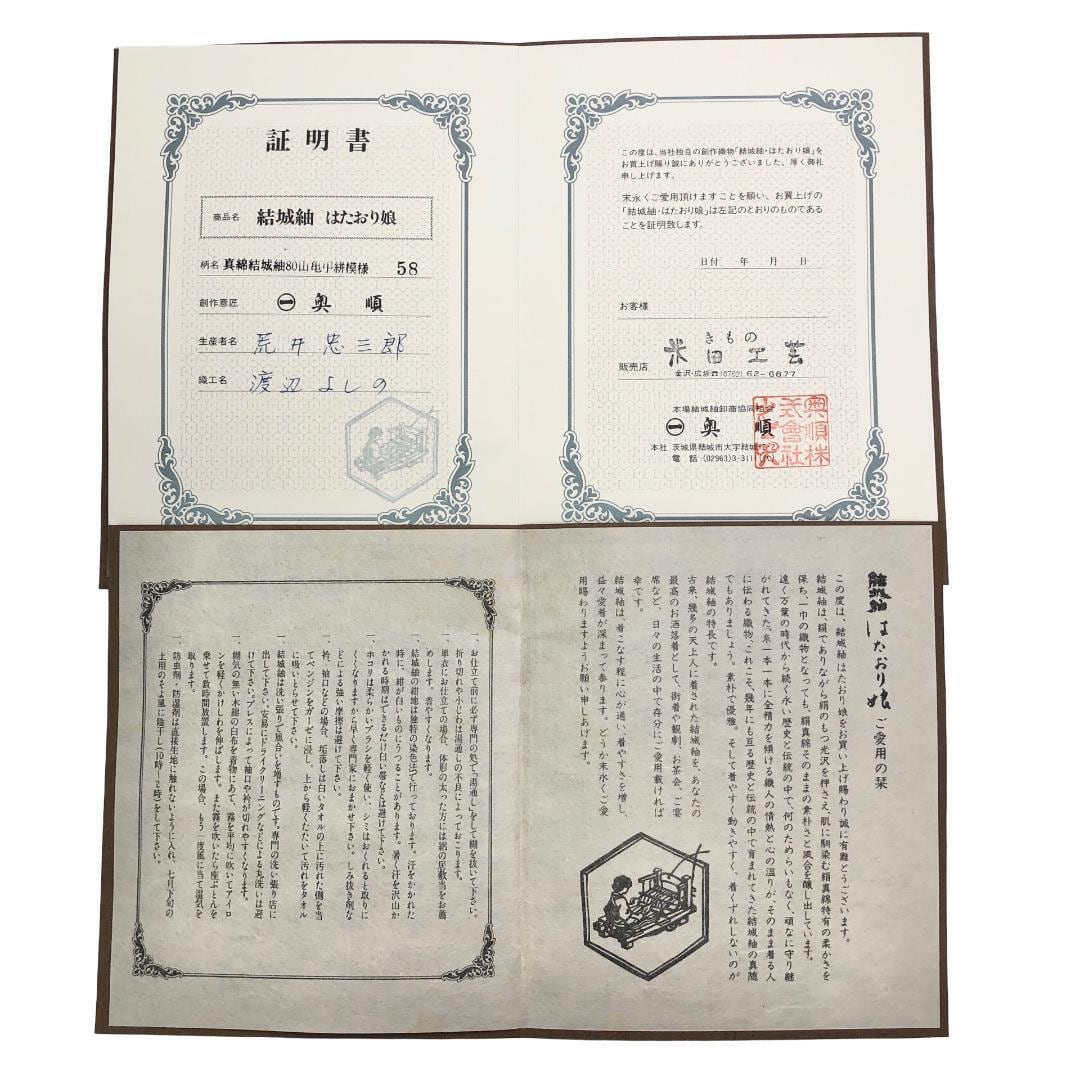 証明書
商品名 結城紬 はたおり娘
柄名 真綿結城紬80山亀甲絣模様 58
創作意匠 ㊀ 奥順
生産者名 荒井忠三郎
織工名 渡辺よしの
この度は、当社独自の創作織物「結城紬・はたおり娘」を
お買上げ賜り誠にありがとうございました、厚く御礼
申し上げます。
末永くご愛用頂けますことを願い、お買上げの
「結城紬・はたおり娘」は左記のとおりのものである
ことを証明致します。
日付 年 月 日
お客様
販売店
きもの
米田工芸
金沢・広坂☎(0762)62-6877
本場結城紬卸商協同組合
㊀ 奥順
本社 茨城県結城市大字結城12-2
電話 (02963)3-3111(代)
奥順株
式會社
結城紬 はたおり娘 ご愛用の栞
この度は、結城紬はたおり娘をお買い上げ賜わり誠に有難とうございます。
結城紬は、絹でありながら絹のもつ光沢を押さえ、肌に馴染む絹真綿特有の柔かさを
保ち、一巾の織物となっても、絹真綿そのままの素朴さと風合を醸し出しています。
遠く万葉の時代から続く永い歴史と伝統の中で、何のためらいもなく、頑なに守り継
がれてきた、糸一本一本に全精力を傾ける織人の情熱と心の温りが、そのまま着る人
に伝わる織物、これこそ、幾年にも亘る歴史と伝統の中で育まれてきた結城紬の真随
でもありましょう。素朴で優雅。そして着やすく動きやすく、着くずれしないのが
結城紬の特長です。
古来、幾多の天上人に着された結城紬を、あなたの
最高のお洒落着として、街着や観劇、お茶会、ご宴
席など、日々の生活の中で存分にご愛用載ければ
幸です。
結城紬は、着こなす程に心が通い、着やすさを増し、
益々愛着が深まって参ります。どうか末永くご愛
用賜わりますようお願い申しあげます。
一、お仕立て前に必ず専門の処で「湯通し」をして糊を抜いて下さい。
折り切れや小じわは湯通しの不良によっておこります。
一、単衣にお仕立ての場合、体形の太った方には絽の居敷当をお薦
めします。着やすくなります。
一、結城紬の紺地は独特の染色法で行っております。汗をかかれた
時に、紺が白いものにうつることがあります。暑く汗を沢山か
かれる時期はできるだけ白い帯などは避けて下さい。
一、ホコリは柔らかいブラシを軽く使い、シミはおくれると取りに
くくなりますから早く専門家におまかせ下さい。しみ抜き剤な
どによる強い摩擦は避けて下さい。
一、衿、袖口などの場合、垢落しは白いタオルの上に汚れた側を当
てベンジンをガーゼに浸し、上から軽くたたいて汚れをタオル
に吸いとらせて下さい。
一、結城紬は洗い張りで風合いを増すものです。専門の洗い張り店に
出して下さい。安易にドライクリーニングなどによる丸洗いは避
けて下さい。プレスによって袖口や衿が切れやすくなります。
一、糊気の無い木綿の白布を着物にあて、霧を平均に吹いてアイロ
ンを軽くかけしわを伸ばします。また霧を吹いたら座ぶとんを
乗せて数時間放置します。この場合、もう一度風に当て湿気を
取ります。
一、防虫剤・防湿剤は直接生地に触れないように入れ、七月下旬の
土用のそよ風に陰干し(10時～2時)をして下さい。